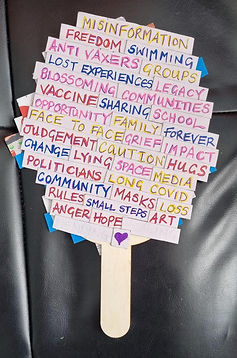 MISINFORMATION
FREEDOM SWIMMING
ANTI VAXERS GROUPS
LOST EXPERIENCES
BLOSSOMING LEGACY
VACCINE COMMUNITIES
OPPORTUNITY SHARING SCHOOL
FACE TO FACE FAMILY FOREVER
JUDGEMENT GRIEF IMPACT
CHANGE LYING CAUTION HUGS
POLITICIANS SPACE MEDIA
COMMUNITY LONG COVID
RULES SMALL STEPS MASKS LOSS
ANGER HOPE ART